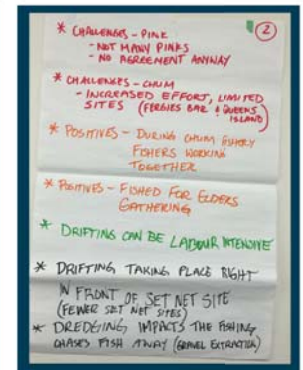 ②
* CHALLENGES - PINK
- NOT MANY PINKS
- NO AGREEMENT ANYWAY
* CHALLENGES - CHUM
- INCREASED EFFORT, LIMITED
SITES (FERGIES BAR & QUEENS
ISLAND)
* POSITIVES - DURING CHUM FISHERY
FISHERS WORKING
TOGETHER
* POSITIVES - FISHED FOR ELDERS
GATHERING
* DRIFTING CAN BE LABOUR INTENSIVE
* DRIFTING TAKING PLACE RIGHT
IN FRONT OF SET NET SITE
(FEWER SET NET SITES)
* DREDGING IMPACTS THE FISHING
CHASES FISH AWAY (GRAVEL EXTRACTION)